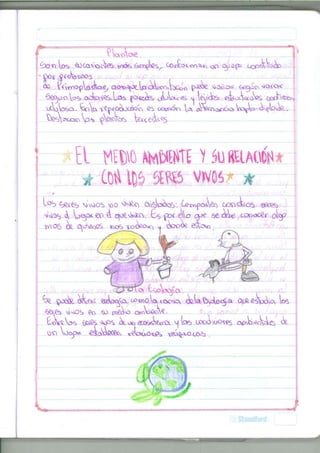 Plantae
Son los eucariontes más simples, conforman un grupo constituido
por protozoos
de Primoplantae, aunque la delimitación puede variar según
Según los autores. Las paredes celulares y tejidos estructurales contienen
celulosa. En la reproducción es común la alternancia haplo-diploide.
Destacan las plantas terrestres
EL MEDIO AMBIENTE Y SU RELACIÓN
CON LOS SERES VIVOS
Los seres vivos no viven aislados: Comparten con otros seres
vivos el lugar en el que viven. Es por ello que se debe conocer algo
mas de quienes nos rodean y donde estan.
La Ecología
Se puede definir ecología como la rama de la Biología que estudia los
seres vivos en su medio ambiente.
Entre los seres vivos de un ecosistema y las condiciones ambientales de
un lugar establecen relaciones reciprocas.
Standford